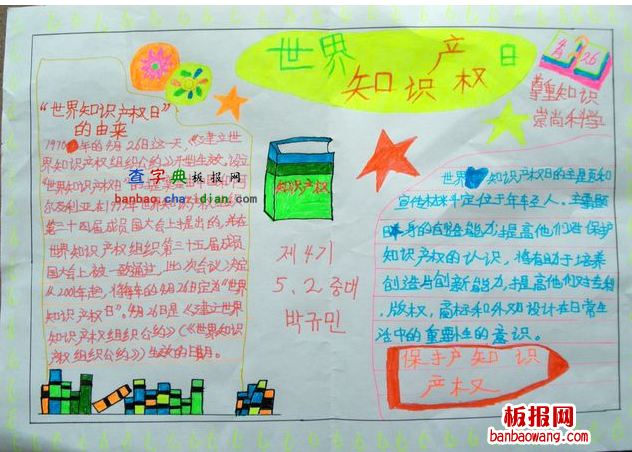 世界知识产权日
4 26
尊重知识
崇尚科学
“世界知识产权日”
的由来
1970年的4月26日这一天,《建立世
界知识产权组织公约》开始生效,设立
“世界知识产权日”的
尔及利亚在1999年
第三十四届成员国大会上提出的,并在
世界知识产权组织第三十五届成员
国大会上被一致通过,此次会议决定
从2001年起,将每年的4月26日定为“世界
知识产权日”。4月26日是《建立世界
知识产权组织公约》(《世界知识
产权组织公约》)生效的日期。
查字典板报网
banbao.chazidian.com
知识产权
第47期
5.2.中队
박규민
世界知识产权日的主是真和
宣传材料定位于年车之人、主题
日 身的 能力,提高他们对保护
知识产权的认识,将有助于培养
创造与创新能力,提高他们对专利
,版权,商标和外观设计在日常生
活中的重要性的意识。
保于产知识
产权
板报网
banbaowang.com